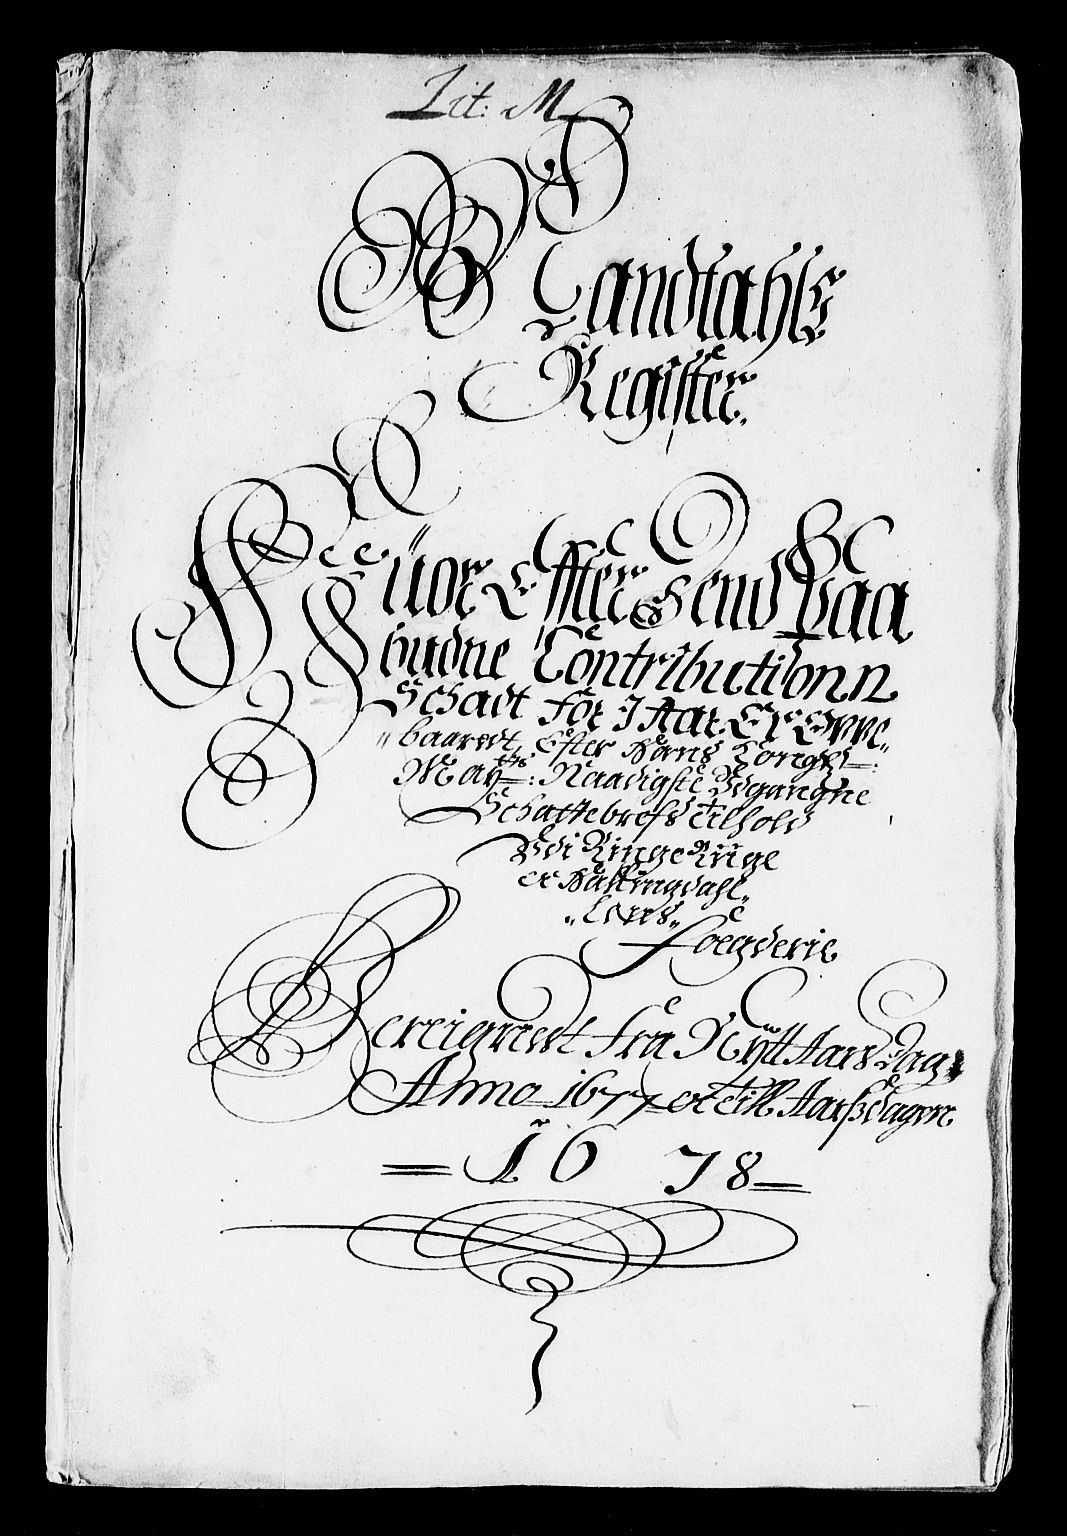 Lit: M
Mandtahls
Register
Huor Effter dend Paa
budne Contributionn
Schadt for J Aar Er Oppe„
„baaredt, Efter Hans Kongl:
Mayts: Naadigste Udgangne
Schattebrefs tilhold
Udi RingeRiige
oc Hallingdahl„
„lehns„
Foegderie
Bereignedt fra Nÿtt Aars Dag
Anno 1677 oc till Aarsdagen
1678